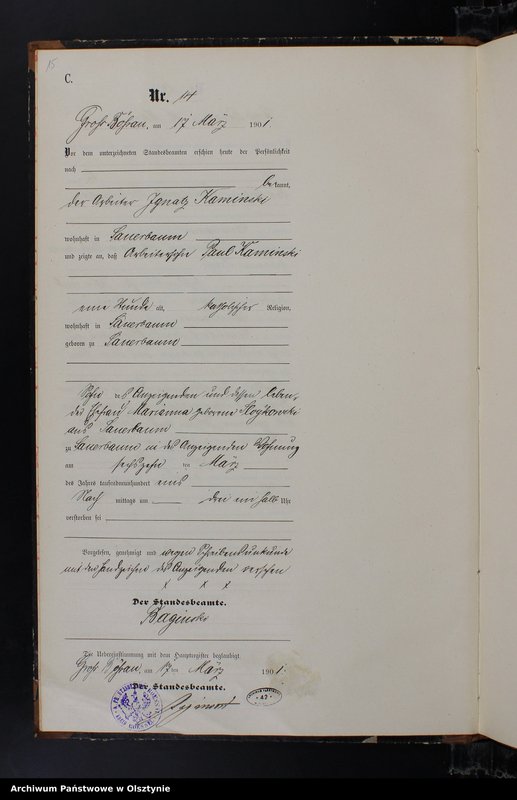 15
C.
Nr. 14
Groß Bößau, am 17 März 1901.
Vor dem unterzeichneten Standesbeamten erschien heute der Persönlichkeit
nach
bekannt,
der Arbeiter Ignatz Kaminski
wohnhaft in Sauerbaum
und zeigte an, daß Arbeitersohn Paul Kaminski
eine Stunde alt, katholischer Religion,
wohnhaft in Sauerbaum
geboren zu Sauerbaum
Sohn des Anzeigenden und dessen Ehefrau Marianna geborene
aus Sauerbaum
zu Sauerbaum in des Anzeigenden Wohnung
am sechszehn ten März
des Jahres tausendneunhundert eins
Nach mittags um drei ein halb Uhr
verstorben sei
Vorgelesen, genehmigt und wegen Schreibensunkunde
mit dem Handzeichen des Anzeigenden versehen
x x x
Der Standesbeamte.
Baginski
Die Uebereinstimmung mit dem Hauptregister beglaubigt.
Groß Bößau, am 17 ten März 1901.
Der Standesbeamte.
* 42 *
Archiwum Państwowe w Olsztynie